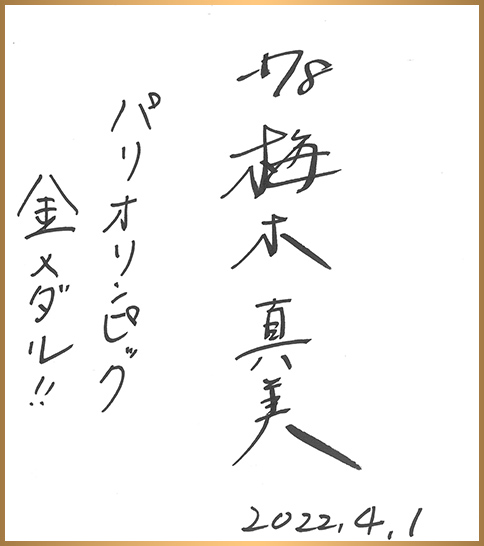 -78
梅木真美
パリオリンピック
金メダル!!
2022.4.1